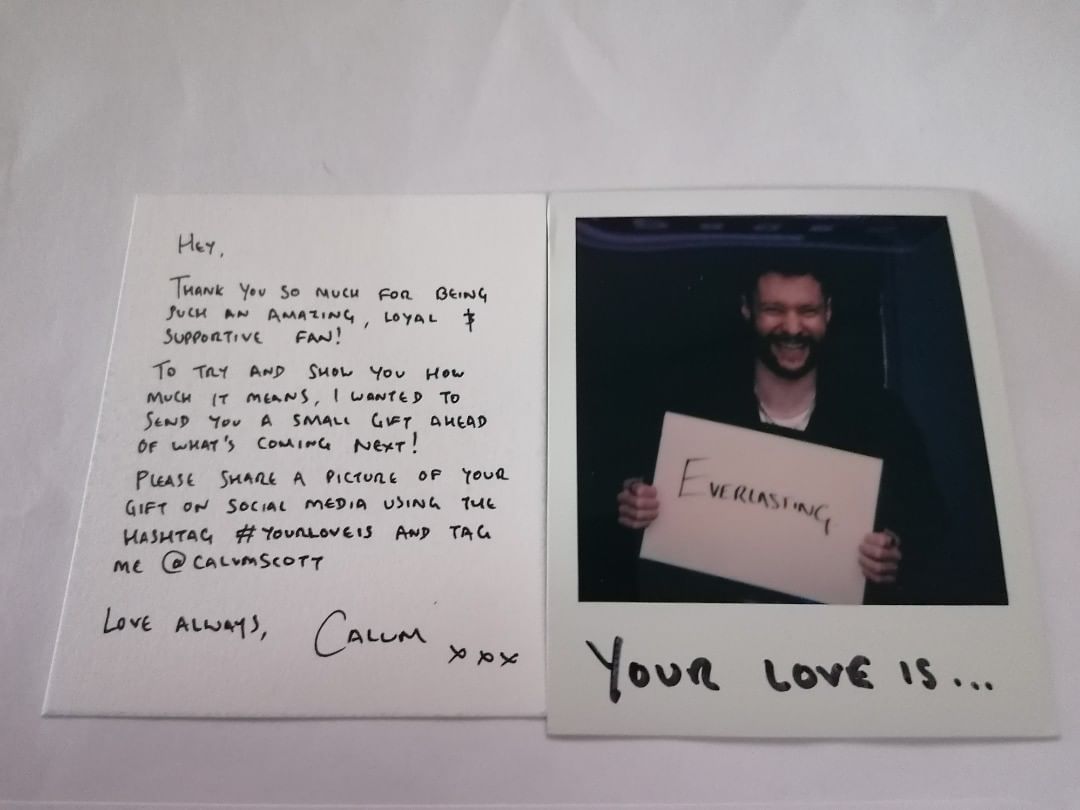 HEY,
THANK YOU SO MUCH FOR BEING
SUCH AN AMAZING, LOYAL &
SUPPORTIVE FAN!
TO TRY AND SHOW YOU HOW
MUCH IT MEANS, I WANTED TO
SEND YOU A SMALL GIFT AHEAD
OF WHAT'S COMING NEXT!
PLEASE SHARE A PICTURE OF YOUR
GIFT ON SOCIAL MEDIA USING THE
HASHTAG #YOURLOVEIS AND TAG
ME @CALUMSCOTT
LOVE ALWAYS, CALUM xxx
EVERLASTING
YOUR LOVE IS...